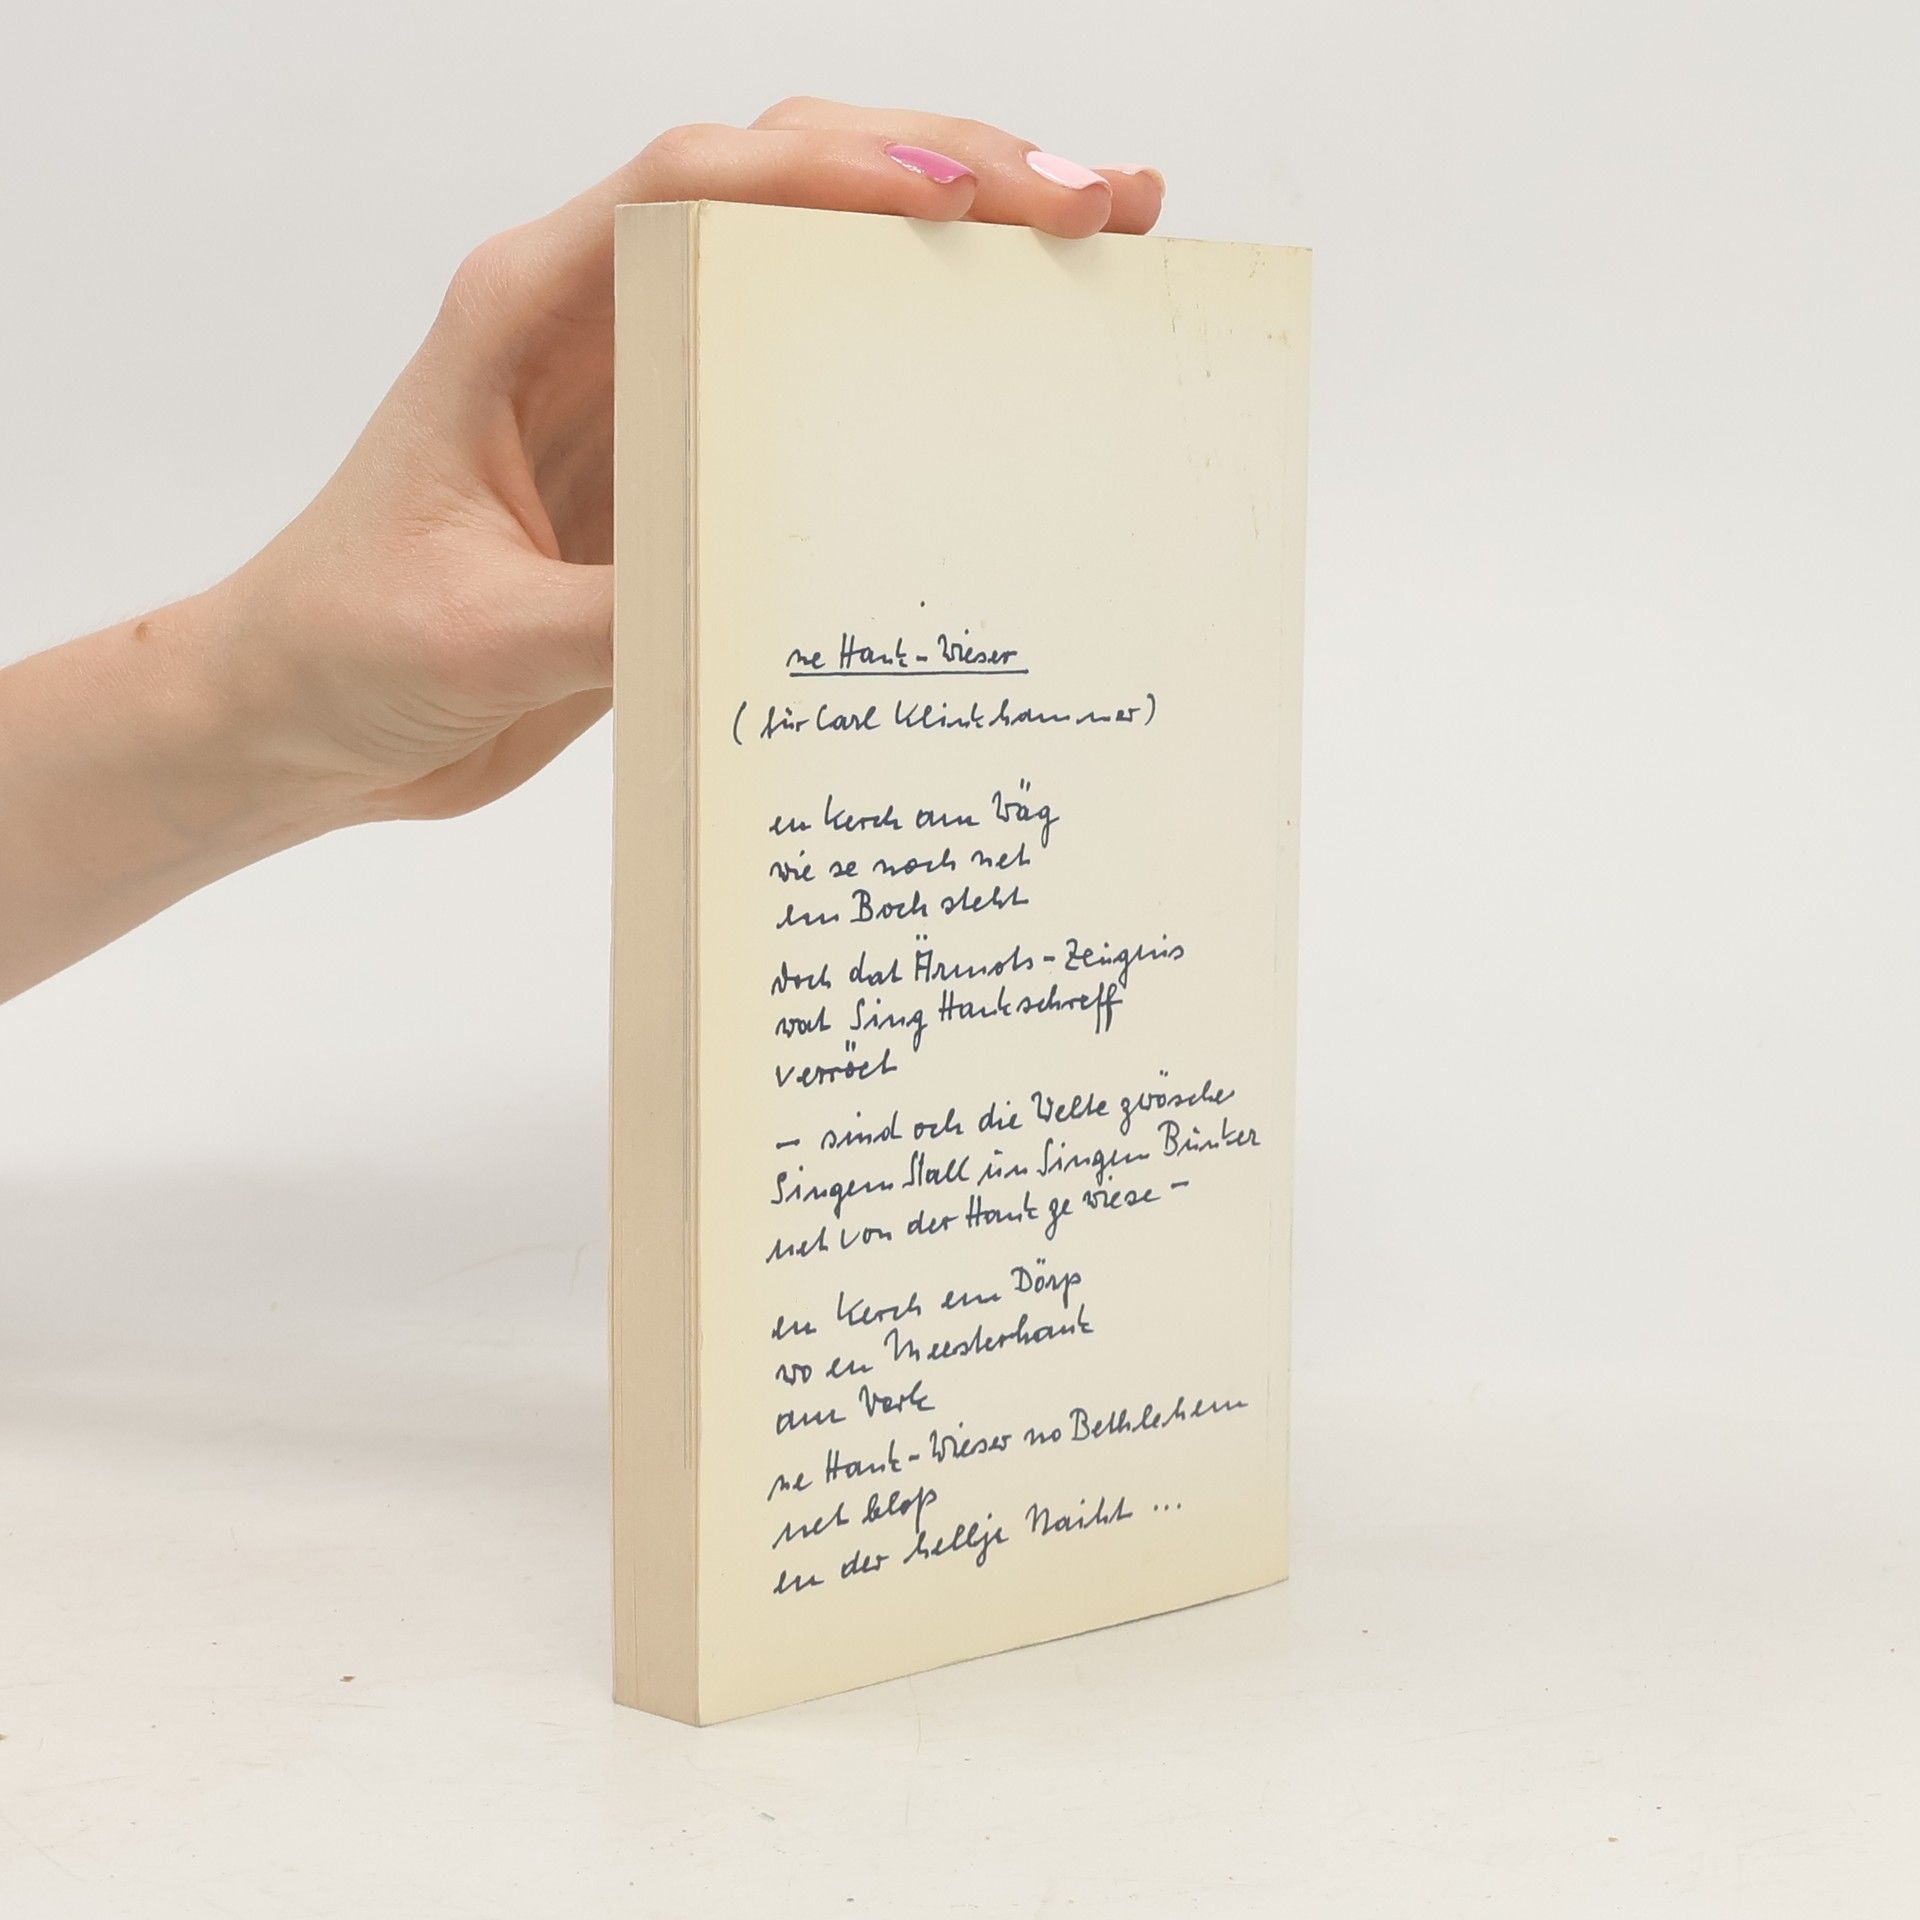 ne Hank-Wieser
(für Carl Klinkhammer)
en Kerch am Wäg
wie se noch net
em Boch steht
doch dat Ärmots-Zeugnis
wat Sing Hankschreff
verröet
– sind och die Welte zwösche
Singem Stall un Singem Bunker
net von der Hank gewiese –
en Kerch em Dörp
wo en Meesterhank
am Werk
ne Hank-Wieser no Bethlehem
net bloß
en der hellje Naiht ...